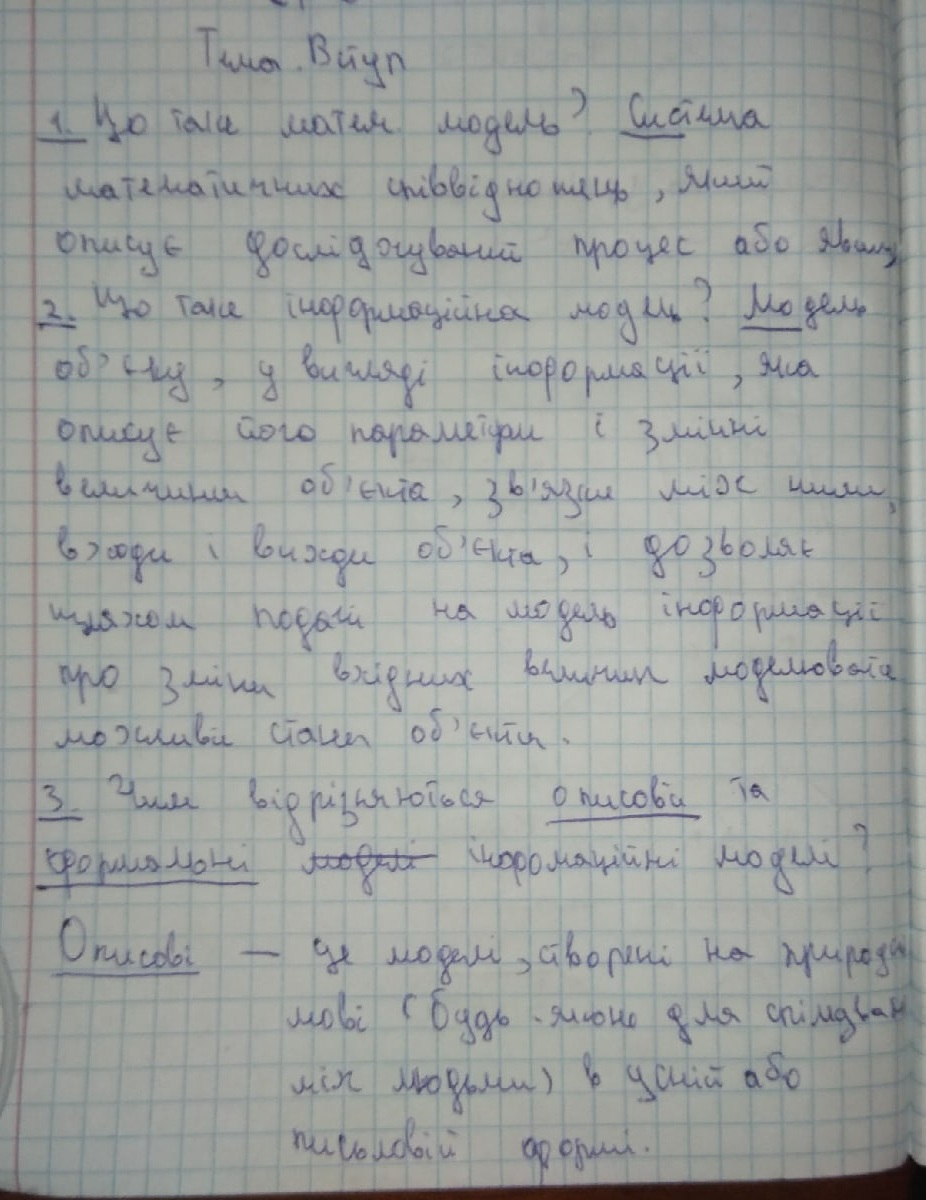 Тема. Вступ
1. Що таке матем модель? Система
математичних співвідношень, який
описує досліджуваний процес або явищ
2. Що таке інформаційна модель? Модель
об'єкту, у вигляді інформації, яка
описує його параметри і змінні
величини об'єкта, зв'язки між ними,
входи і виходи об'єкта, і дозволяє
шляхом подачі на модель інформації
про зміни вхідних величин моделювати
можливі стани об'єкта.
3. Чим відрізняються описові та
формальні моделі інформаційні моделі?
Описові — це моделі, створені на природн
мові (будь-якою для спілкуван
між людьми) в усній або
письмовій формі.